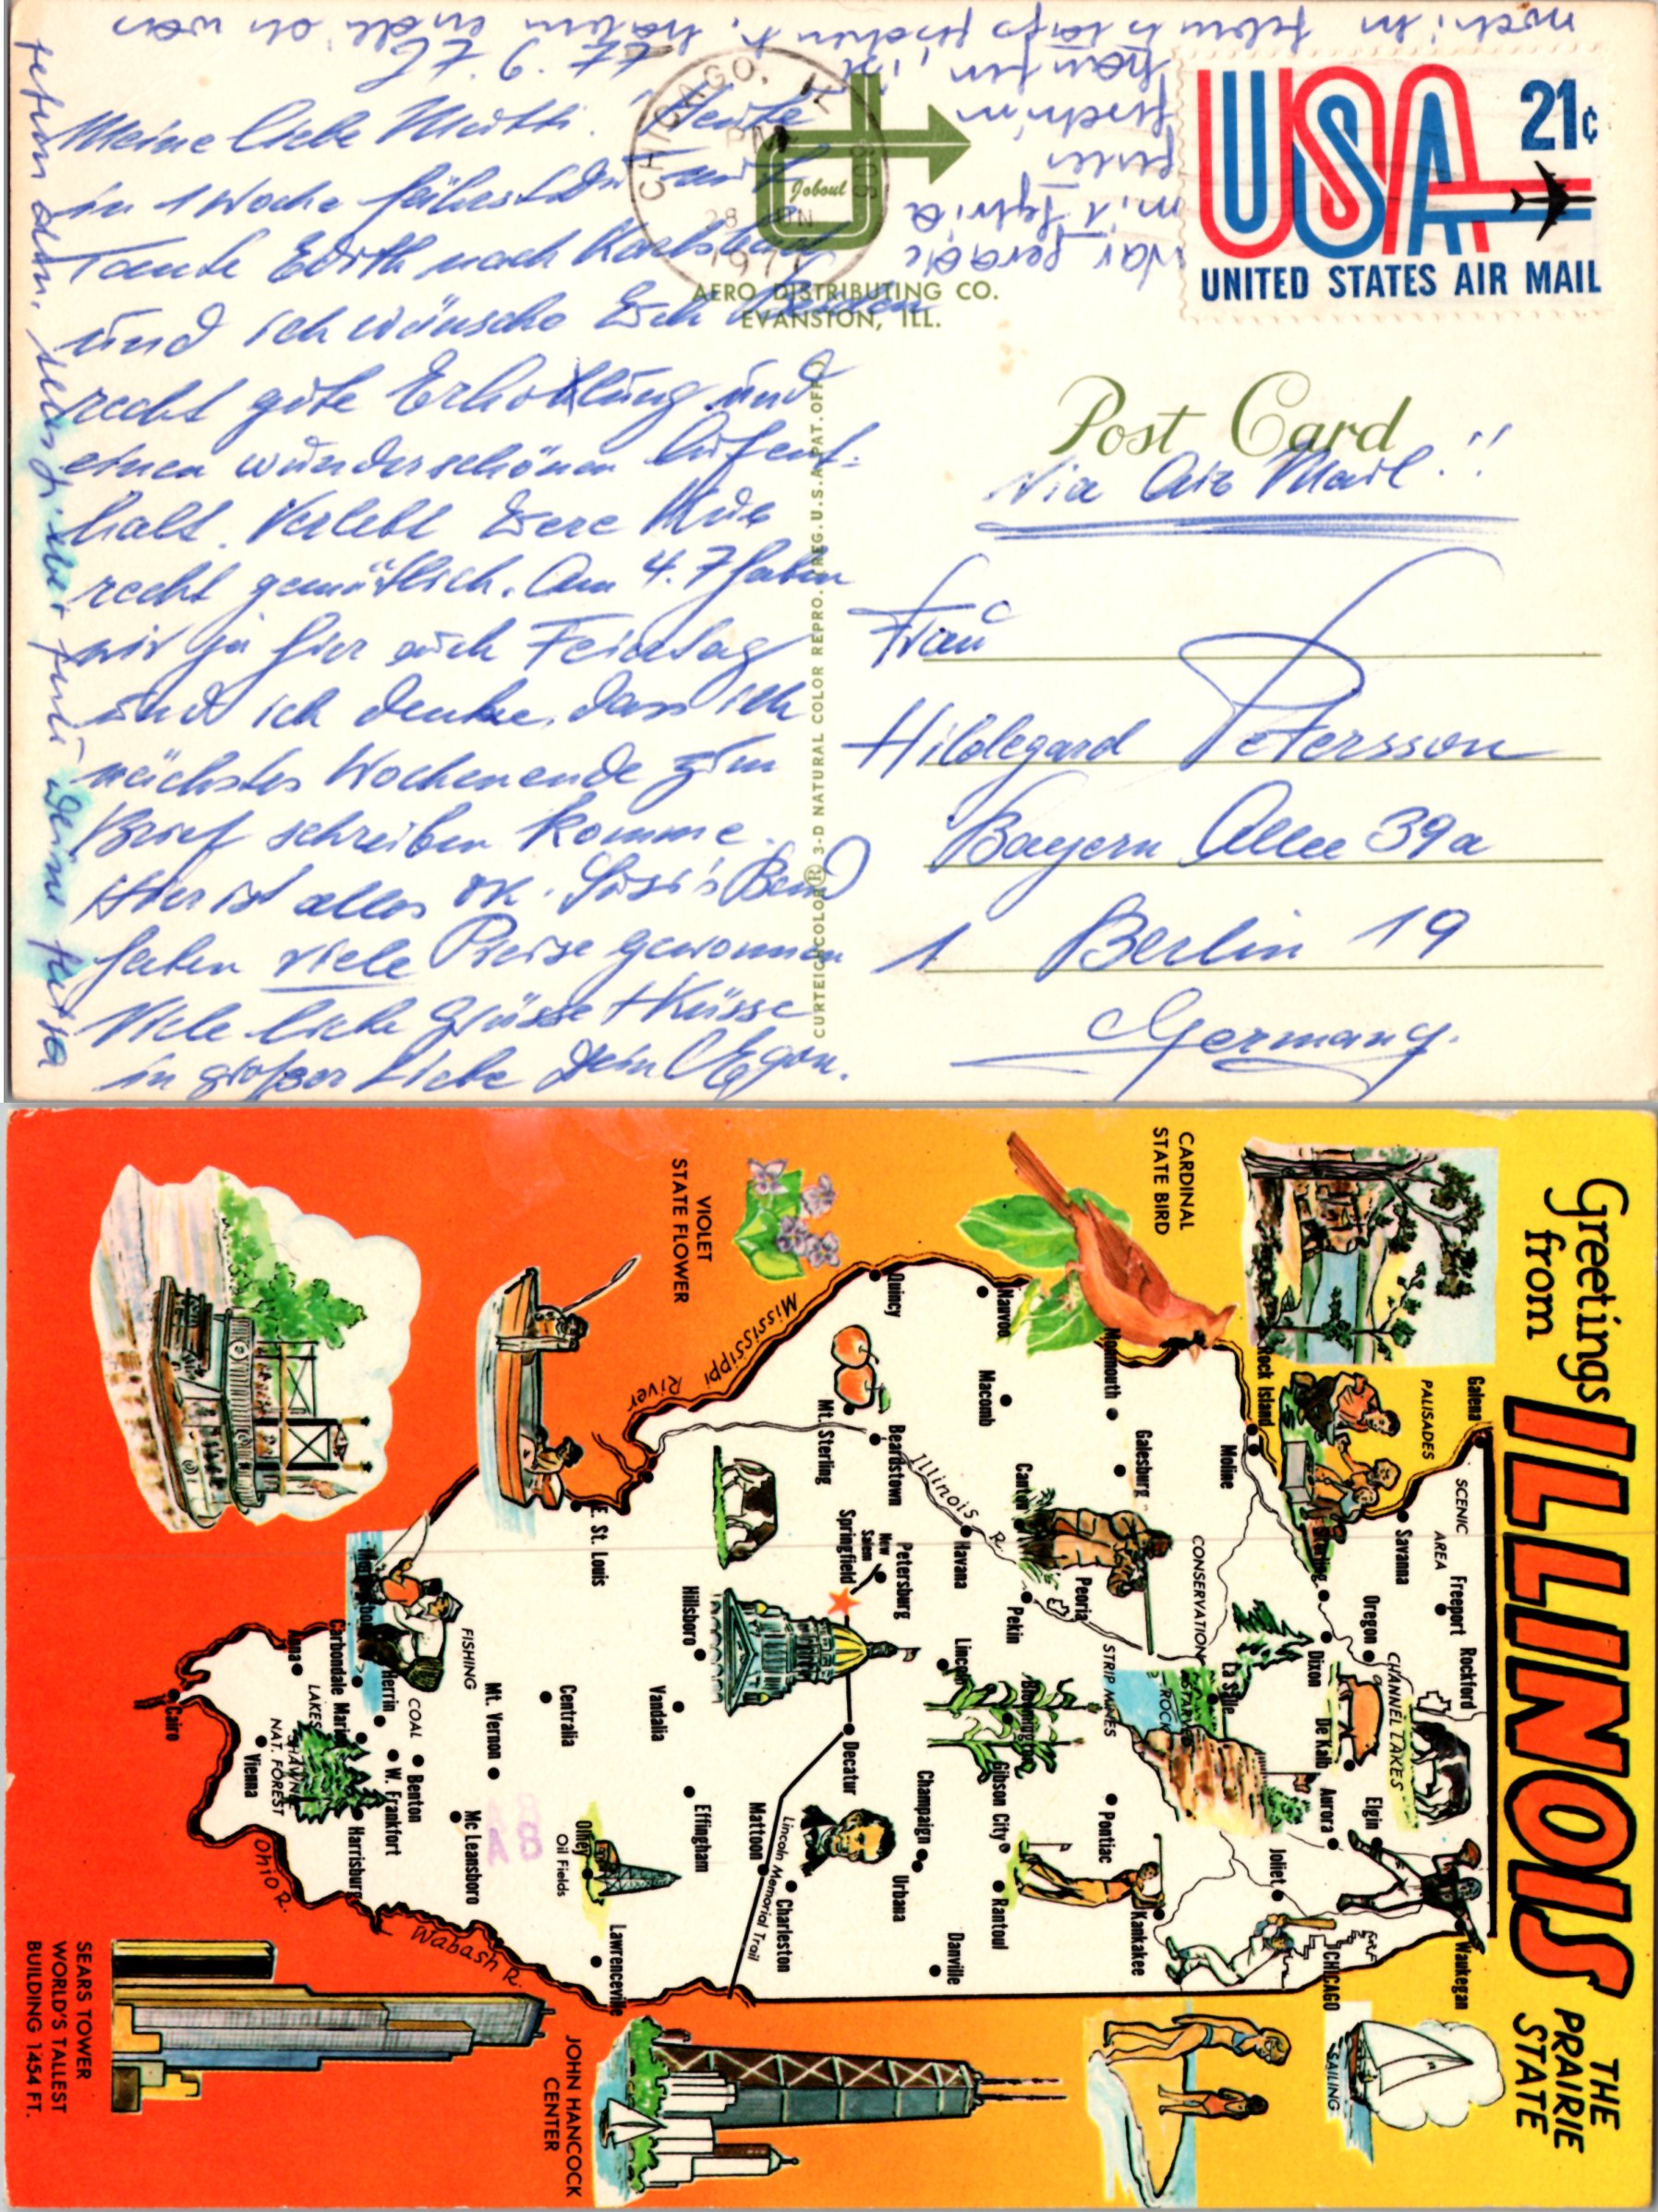 27. 6. 77
Meine liebe Mutti! Heute
in 1 Woche fährst Du mit
Tante Edith nach Karlsbad
und ich wünsche Euch beiden
recht gute Erholung und
einen wunderschönen Aufent-
halt. Verlebt Eure Kur
recht gemütlich. Am 4. 7 haben
wir ja hier auch Feiertag
und ich denke, dass ich
nächstes Wochenende zum
Brief schreiben komme.
Hier ist alles ok. Susi's Bend
haben viele Preise gewonnen
Viele liebe Grüsse + Küsse
in großer Liebe Dein Egon.
War gerade
mit Sylvia
CHICAGO, IL
PM
28 JUN
1977
606
Joboul
AERO DISTRIBUTING CO.
EVANSTON, ILL.
USA 21c
UNITED STATES AIR MAIL
CURTEICHCOLOR® 3-D NATURAL COLOR REPRO. (REG. U.S.A. PAT. OFF.)
Post Card
Via Air Mail!!
Frau
Hildegard Petersson
Bayern Allee 39a
1 Berlin 19
Germany.
Greetings
from
ILLINOIS
THE
PRAIRIE
STATE
CARDINAL
STATE BIRD
VIOLET
STATE FLOWER
Galena
PALISADES
SCENIC
AREA
Freeport
Rockford
Savanna
Oregon
CHANNEL LAKES
Elgin
Waukegan
Rock Island
Moline
Sterling
Dixon
De Kalb
Aurora
CHICAGO
SAILING
CONSERVATION
La Salle
STARVED
ROCK
Joliet
Monmouth
Galesburg
Peoria
STRIP MINES
Pontiac
Kankakee
Nauvoo
Macomb
Canton
Pekin
Bloomington
Gibson City
Rantoul
Illinois R.
Havana
Lincoln
Champaign
Urbana
Danville
Quincy
Mt. Sterling
Beardstown
Petersburg
New
Salem
Springfield
Decatur
Mattoon
Lincoln Memorial Trail
Charleston
Mississippi
River
Hillsboro
Vandalia
Effingham
E. St. Louis
Centralia
Olney
Oil Fields
Lawrenceville
FISHING
Mt. Vernon
Mc Leansboro
COAL
Benton
W. Frankfort
Herrin
Carbondale
Marion
Harrisburg
Anna
LAKES
SHAWNEE
NAT. FOREST
Vienna
Cairo
Ohio R.
Wabash R.
JOHN HANCOCK
CENTER
SEARS TOWER
WORLD'S TALLEST
BUILDING 1454 FT.